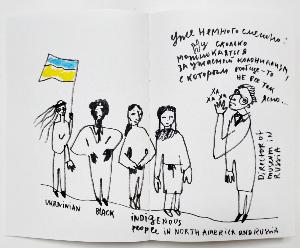 уже немного смешно!
ну сколько
можно каяться
за ужасный колониализм
с которым вообще-то
не все так
ясно...
ХА
ХА ХА
UKRAINIAN
BLACK
INDIGENOUS
PEOPLE IN NORTH AMERICA AND RUSSIA
DIRECTOR OF
MUSEUM IN
RUSSIA